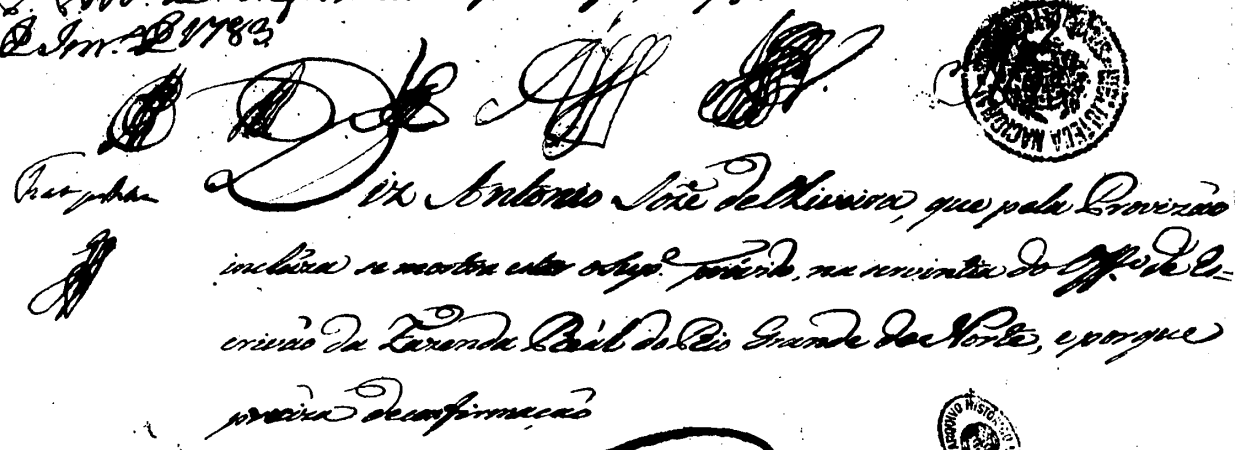 1783
Diz Antonio Jozê de Oliveira, que pela Provizão
incluza se mostra estar o Sup.e provido, na serventia do Off.o de Es=
crivão da Fazenda Reàl do Rio Grande do Norte, e porque
preciza de confirmação
BIBLIOTECA NACIONAL
ARQUIVO HISTÓRICO